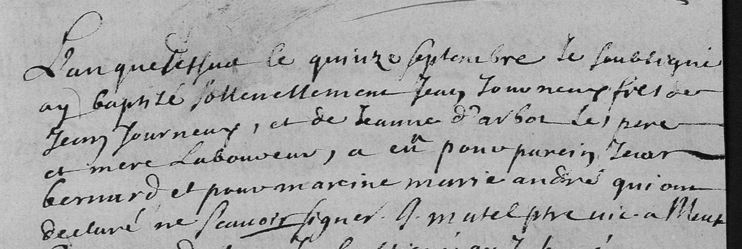 L'an que dessus le quinze septembre Je soubsigné
ay baptizé sollenellement Jean Journeux fils de
Jean Journeux, et de Jeanne d'arbot ses pere
et mere Laboureur, a eu pour parein Jean
bernard et pour mareine marie andré qui ont
declaré ne scavoir signer. J. matel ptre vic. a